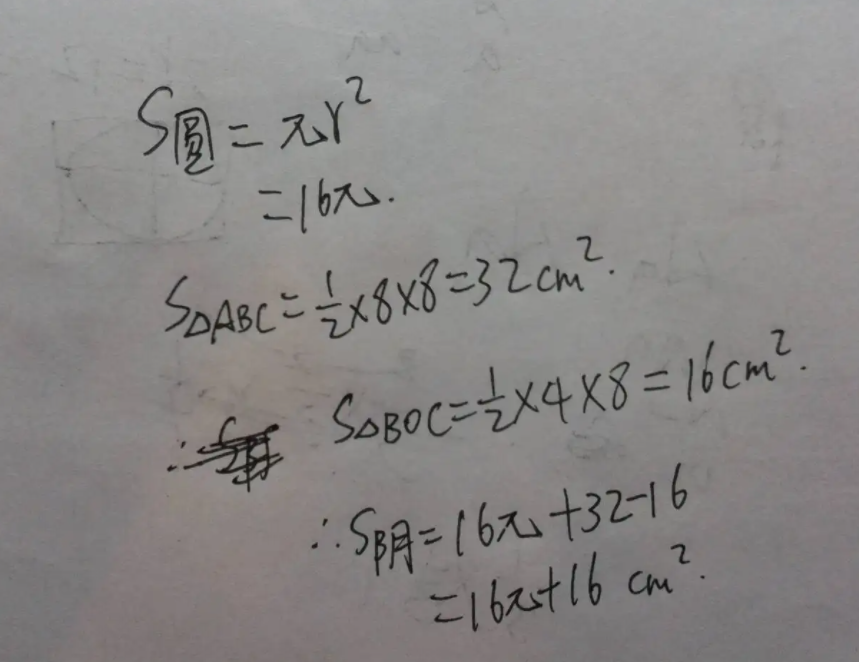 S圆 = πr²
= 16π.
S△ABC = ½×8×8 = 32cm².
∴ S△BOC = ½×4×8 = 16cm².
∴ S阴 = 16π+32-16
= 16π+16 cm².